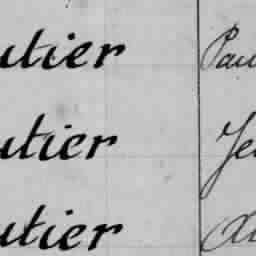 utier Pau
utier Je
utier